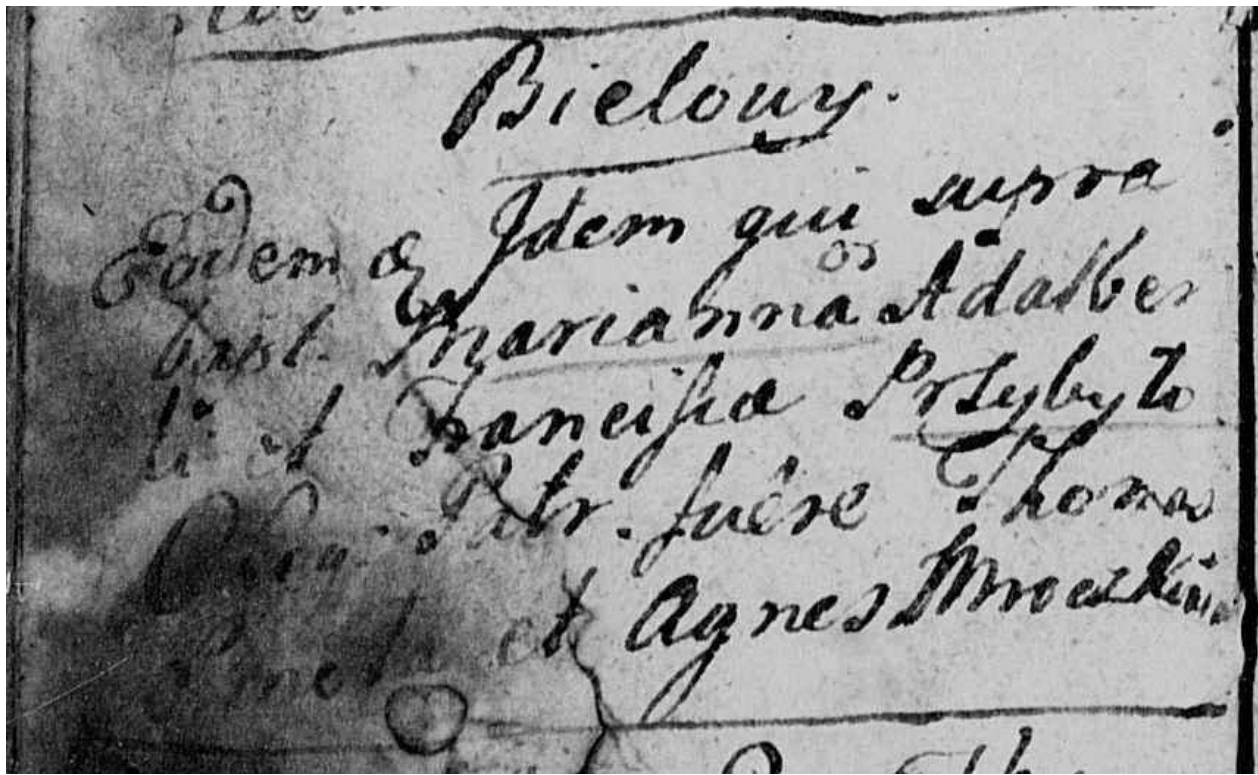 Bielouy.
Eodem & Idem qui supra
bapt. Mariannã Adalber
ti et Franciscæ Przybyto
Patr. fuêre Thomas
et Agnes